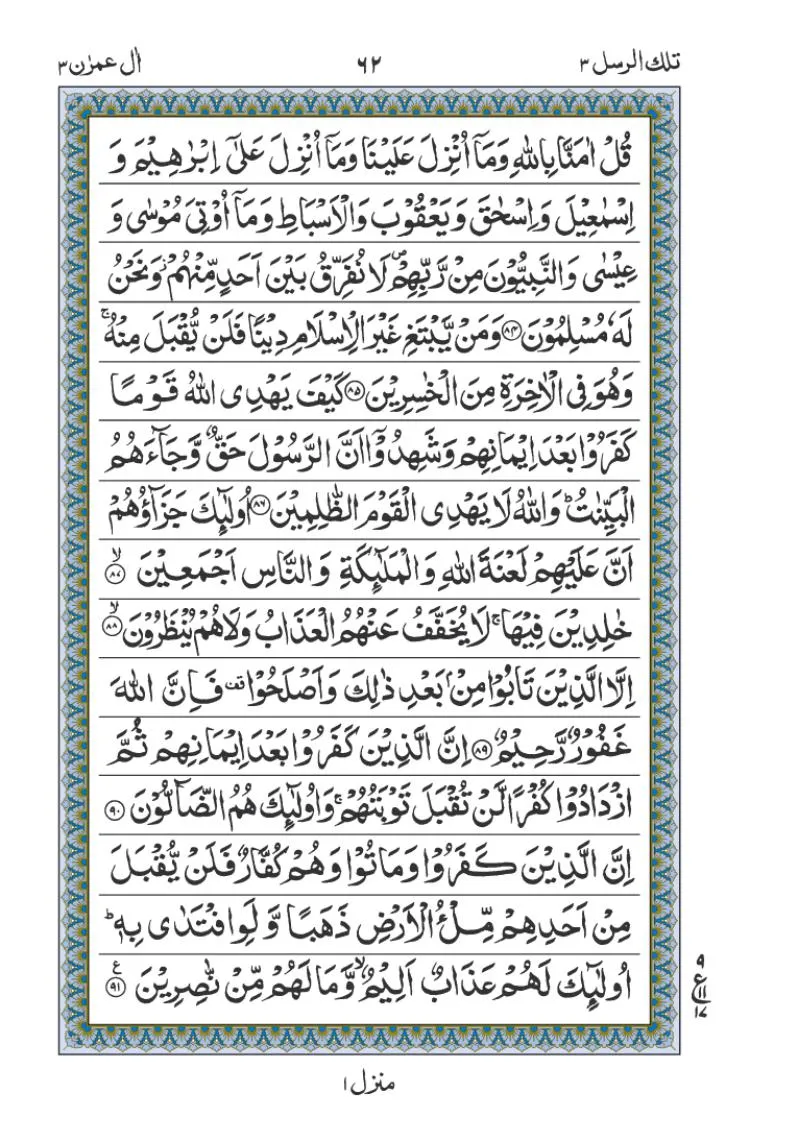 تلك الرسل ٣ ٦٢ اٰل عمرٰن ٣
قُلْ اٰمَنَّا بِاللّٰهِ وَمَاۤ اُنْزِلَ عَلَيْنَا وَمَاۤ اُنْزِلَ عَلٰۤى اِبْرٰهِيْمَ وَ
اِسْمٰعِيْلَ وَاِسْحٰقَ وَيَعْقُوْبَ وَالْاَسْبَاطِ وَمَاۤ اُوْتِىَ مُوْسٰى وَ
عِيْسٰى وَالنَّبِيُّوْنَ مِنْ رَّبِّهِمْ ۖ لَا نُفَرِّقُ بَيْنَ اَحَدٍ مِّنْهُمْ ۫ وَنَحْنُ
لَهٗ مُسْلِمُوْنَ ﴿۸۴﴾ وَمَنْ يَّبْتَغِ غَيْرَ الْاِسْلَامِ دِيْنًا فَلَنْ يُّقْبَلَ مِنْهُ ۚ
وَهُوَ فِى الْاٰخِرَةِ مِنَ الْخٰسِرِيْنَ ﴿۸۵﴾ كَيْفَ يَهْدِى اللّٰهُ قَوْمًا
كَفَرُوْا بَعْدَ اِيْمَانِهِمْ وَشَهِدُوْۤا اَنَّ الرَّسُوْلَ حَقٌّ وَّجَآءَهُمُ
الْبَيِّنٰتُ ؕ وَاللّٰهُ لَا يَهْدِى الْقَوْمَ الظّٰلِمِيْنَ ﴿۸۶﴾ اُولٰٓئِكَ جَزَآؤُهُمْ
اَنَّ عَلَيْهِمْ لَعْنَةَ اللّٰهِ وَالْمَلٰٓئِكَةِ وَالنَّاسِ اَجْمَعِيْنَ ۙ ﴿۸۷﴾
خٰلِدِيْنَ فِيْهَا ۚ لَا يُخَفَّفُ عَنْهُمُ الْعَذَابُ وَلَا هُمْ يُنْظَرُوْنَ ۙ ﴿۸۸﴾
اِلَّا الَّذِيْنَ تَابُوْا مِنْۢ بَعْدِ ذٰلِكَ وَاَصْلَحُوْا ۟ فَاِنَّ اللّٰهَ
غَفُوْرٌ رَّحِيْمٌ ﴿۸۹﴾ اِنَّ الَّذِيْنَ كَفَرُوْا بَعْدَ اِيْمَانِهِمْ ثُمَّ
ازْدَادُوْا كُفْرًا لَّنْ تُقْبَلَ تَوْبَتُهُمْ ۚ وَاُولٰٓئِكَ هُمُ الضَّآلُّوْنَ ﴿۹۰﴾
اِنَّ الَّذِيْنَ كَفَرُوْا وَمَاتُوْا وَهُمْ كُفَّارٌ فَلَنْ يُّقْبَلَ
مِنْ اَحَدِهِمْ مِّلْءُ الْاَرْضِ ذَهَبًا وَّلَوِ افْتَدٰى بِهٖ ؕ
اُولٰٓئِكَ لَهُمْ عَذَابٌ اَلِيْمٌ ۙ وَّمَا لَهُمْ مِّنْ نّٰصِرِيْنَ ﴿۹۱﴾ ع
۹
ع
۱۱
۱۷
منزل ١